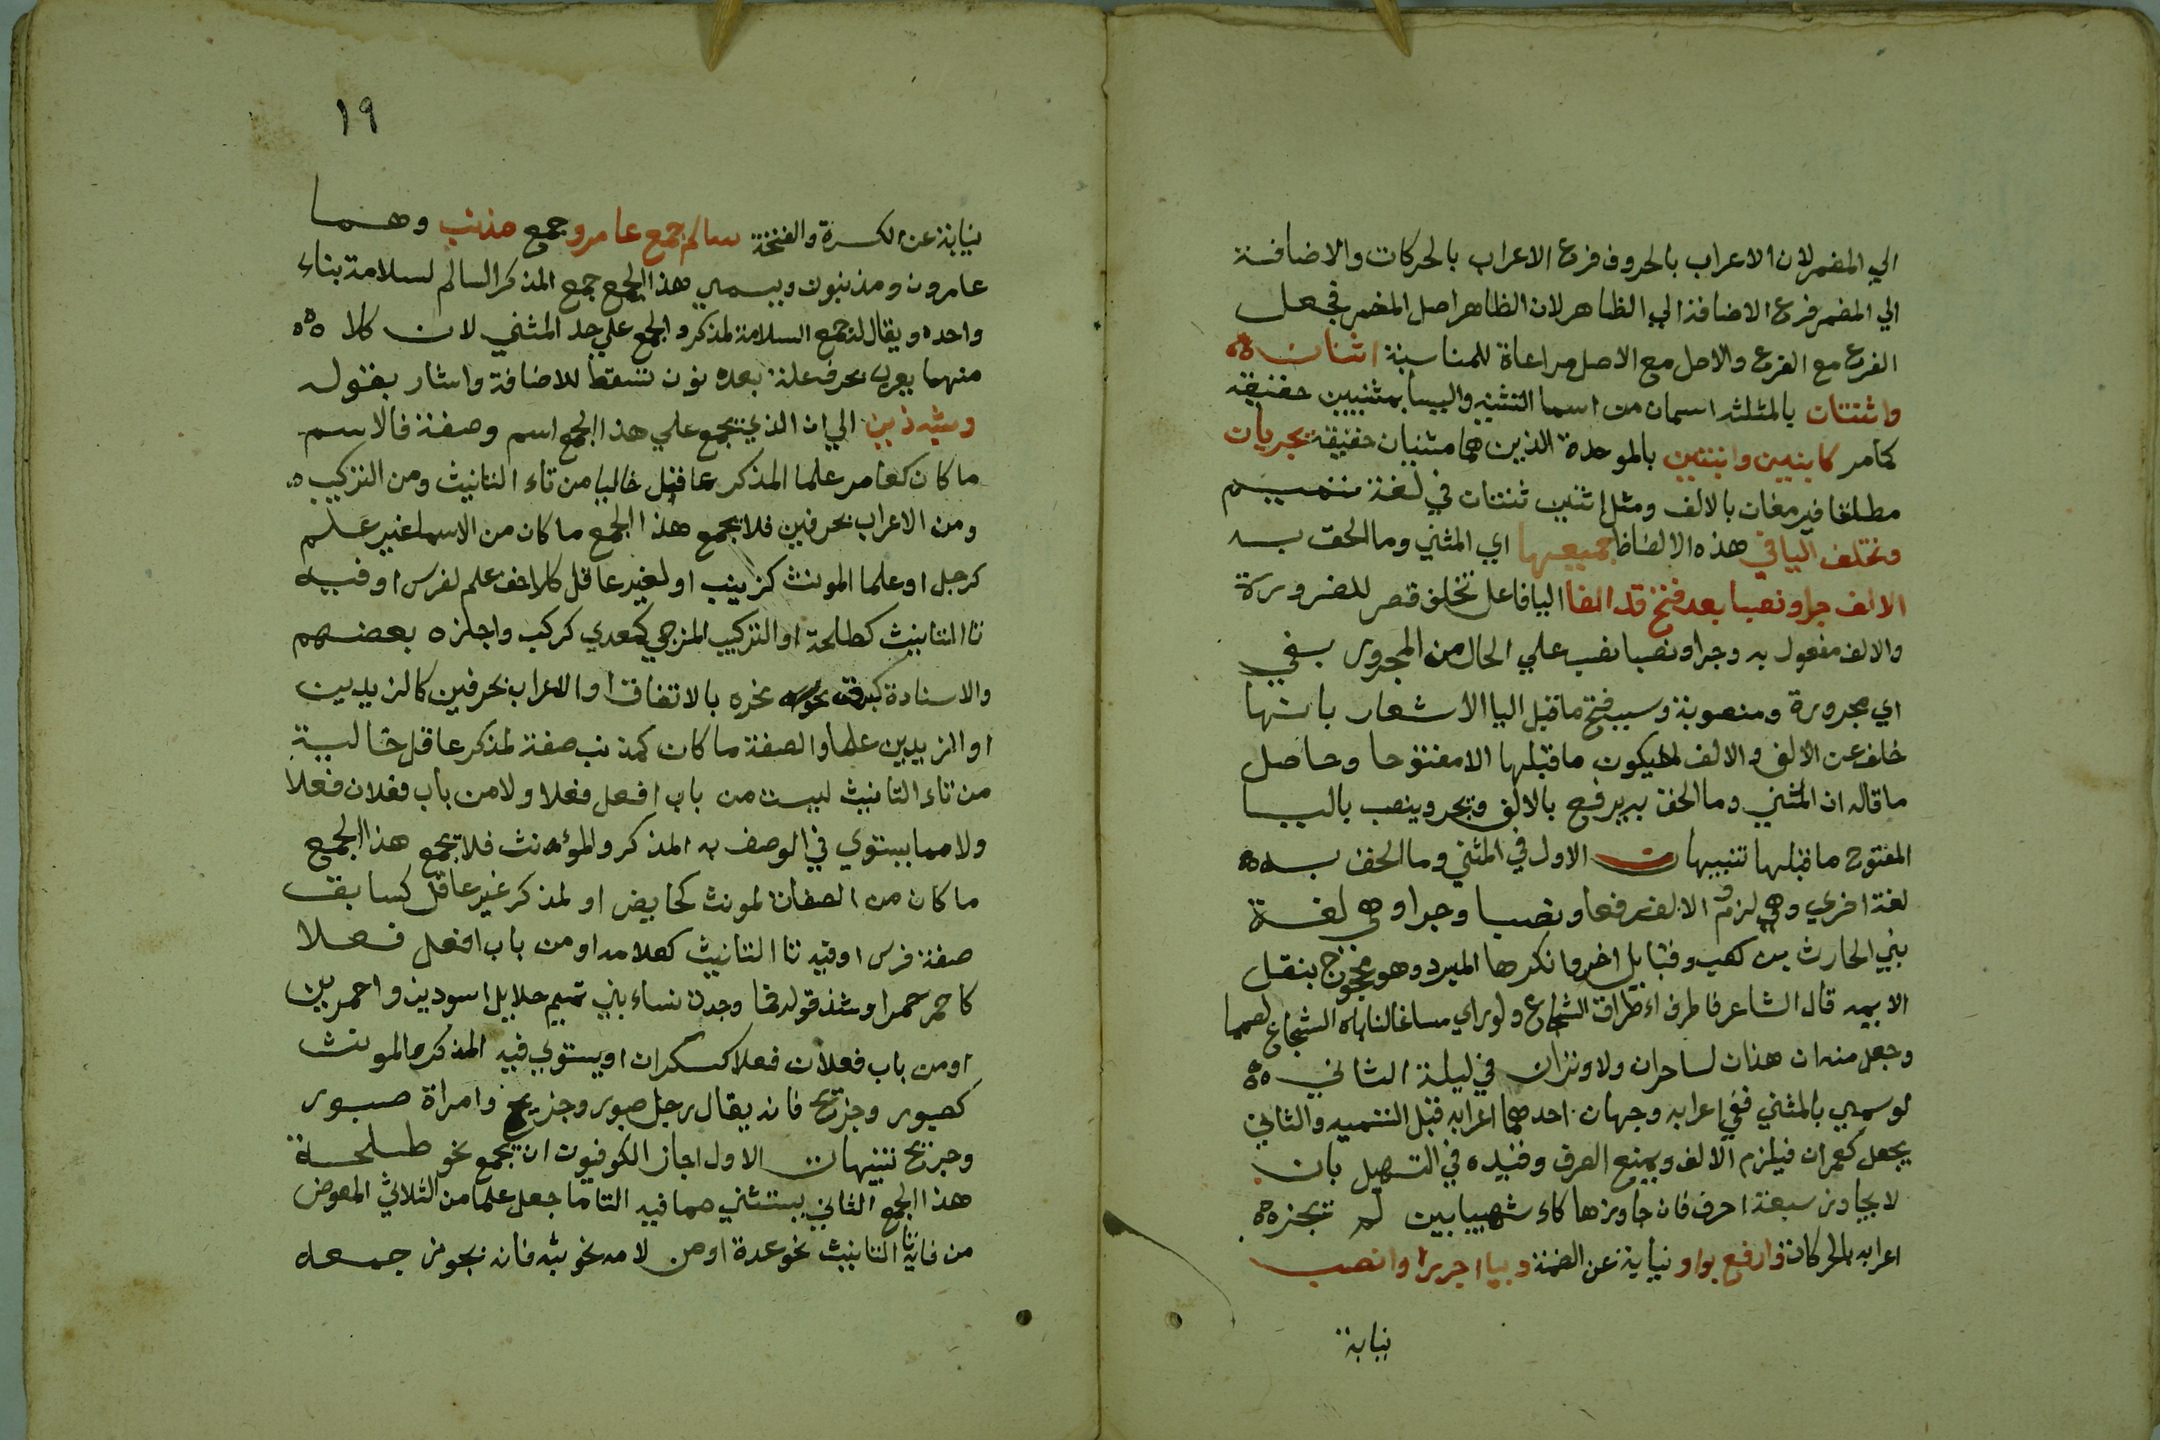 الي المضمر لان الاعراب بالحروف فرع الاعراب بالحركات والاضافة
الي المضمر فرع الاضافة الي الظاهر لان الظاهر اصل المضمر فجعل
الفرع مع الفرع والاصل مع الاصل مراعاة للمناسبة اثنان
واثنتان بالمثلثه اسمان من اسما التثنيه وليسا بمثنيين حقيقة
كما مر كابنين وابنتين بالموحدة الذين هما مثنيان حقيقة يجريان
مطلقا فيرفعان بالالف ومثل اثنين ثنتان في لغة تميم
وتخلف اليا في هذه الالفاظ جميعها اي المثني وما الحق به
الالف جرا ونصبا بعد فتح قد الفا اليا فاعل تخلف قصر للضرورة
والالف مفعول به وجرا ونصبا نصب علي الحال من المجرور بفي
اي مجرورة ومنصوبة وسبب فتح ما قبل اليا الاشعار بانها
خلف عن الالف والالف لا يكون ما قبلها الا مفتوحا وحاصل
ما قاله ان المثني وما الحق به يرفع بالالف ويجر وينصب باليا
المفتوح ما قبلها تنبيهات الاول في المثني وما الحق به
لغة اخري وهي لزوم الالف رفعا ونصبا وجرا وهي لغة
بني الحارث بن كعب وقبايل اخر وانكرها المبرد وهو محجوج بنقل
الايمه قال الشاعر فاطرق اطراق الشجاع ولو راي مساغا لناباه الشجاع لصمما
وجعل منه ان هذان لساحران ولا وتران في ليلة الثاني
لو سمي بالمثني ففي اعرابه وجهان احدهما اعرابه قبل التسميه والثاني
يجعل كعمران فيلزم الالف ويمنع الصرف وقيده في التسهيل بان
لا يجاوز سبعة احرف فان جاوزها كاشهيبابين لم تجزه
اعرابه بالحركات وارفع بواو نيابة عن الضمة وبيا اجرر وانصب
نيابة
١٩
نيابة عن الكسرة والفتحة سالم جمع عامر وجمع مذنب وهما
عامرون ومذنبون ويسمي هذا الجمع جمع المذكر السالم لسلامة بناء
واحده ويقال له جمع السلامة لمذكر والجمع علي حد المثني لان كلا
منهما يعرب بحرف علة بعده نون تسقط للاضافة واشار بقوله
وشبه ذين الي ان الذي يجمع علي هذا الجمع اسم وصفة فالاسم
ما كان كعامر علما لمذكر عاقل خاليا من تاء التانيث ومن التركيب
ومن الاعراب بحرفين فلا يجمع هذا الجمع ما كان من الاسما غير علم
كرجل او علما لمونث كزينب او لغير عاقل كلاحق علم لفرس او فيه
تا التانيث كطلحة او التركيب المزجي كمعدي كركب واجازه بعضهم
والاسنادة كبرق نحره بالاتفاق او الاعراب بحرفين كالزيدين
او الزيدين علما والصفة ما كان كمذنب صفة لمذكر عاقل خالية
من تاء التانيث ليست من باب افعل فعلا ولا من باب فعلان فعلا
ولا مما يستوي في الوصف به المذكر والمؤنث فلا يجمع هذا الجمع
ما كان من الصفات لمونث كحايض او لمذكر غير عاقل كسابق
صفة فرس او فيه تا التانيث كعلامه او من باب افعل فعلا
كاحمر حمرا وشذ قوله فما وجدت نساء بني تميم حلايل اسودين واحمرين
او من باب فعلان فعلا كسكران او يستوي فيه المذكر والمونث
كصبور وجريح فانه يقال رجل صبور وجريح وامراة صبور
وجريح تنبيهات الاول اجاز الكوفيون ان يجمع نحو طلحة
هذا الجمع الثاني يستثني مما فيه التا ما جعل علما من الثلاثي المعوض
من فايه تا التانيث نحو عدة او من لامه نحو ثبه فانه يجوز جمعه